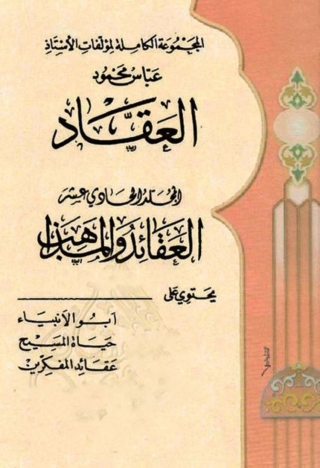 المجموعة الكاملة لمؤلفات الأستاذ
عباس محمود
العقاد
المجلد الحادي عشر
العقائد والمذاهب
يحتوي على
أبو الأنبياء
حياة المسيح
عقائد المفكرين